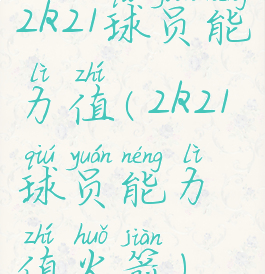 2k21球员能
lì zhí
力值(2k21
qiú yuán néng lì
球员能力
zhí huǒ jiàn
值火箭)